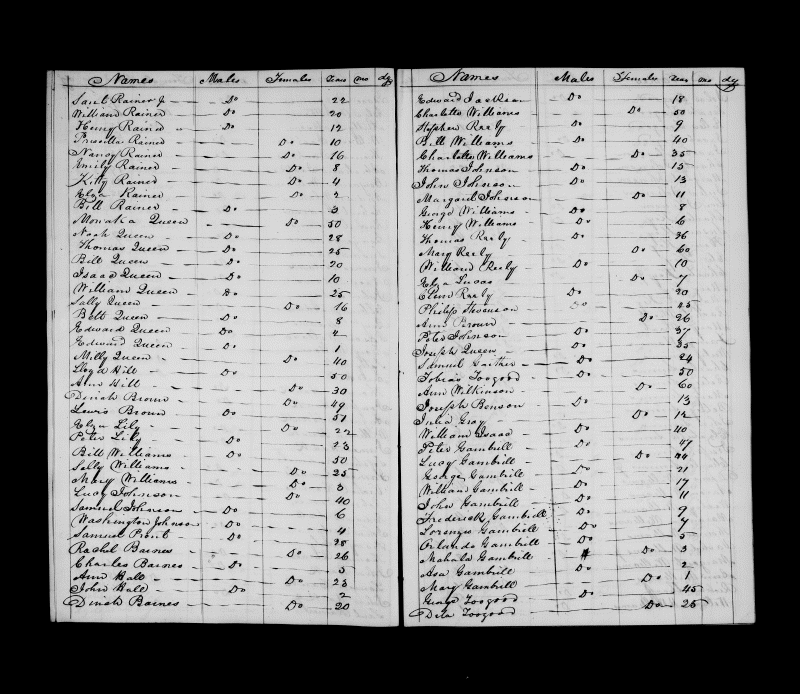 Names Males Females Years mo dy
Saul Rainer Jr Do 22
William Rainer Do 20
Henry Rainer Do 12
Priscilla Rainer Do 10
Nancy Rainer Do 16
Emily Rainer Do 8
Kitty Rainer Do 4
Elza Rainer Do 2
Bill Rainer Do 3
Monaka Queen Do 50
Noah Queen Do 28
Thomas Queen Do 25
Bill Queen Do 20
Isaac Queen Do 10
William Queen Do 25
Sally Queen Do 16
Bett Queen Do 8
Edward Queen Do 4
Edward Queen Do 1
Milly Queen Do 40
Lloyd Hill Do 50
Ann Hill Do 30
Dinah Brown Do 49
Lewis Brown Do 51
Elza Lily Do 22
Peter Lily Do 23
Bill Williams Do 50
Sally Williams Do 25
Mary Williams Do 3
Lucy Johnson Do 40
Samuel Johnson Do 6
Washington Johnson Do 4
Samuel Prout Do 28
Rachel Barnes Do 26
Charles Barnes Do 3
Ann Hall Do 23
John Hall Do 2
Dinah Barnes Do 20
Names Males Females Years mo dy
Edward Jackson Do 18
Charlotte Williams Do 50
Stephen Reely Do 9
Bill Williams Do 40
Charlotte Williams Do 35
Thomas Johnson Do 15
John Johnson Do 13
Margaret Johnson Do 11
George Williams Do 8
Henry Williams Do 6
Thomas Reely Do 36
Mary Reely Do 60
William Reely Do 10
Elza Lucas Do 7
Reely Do 20
Philip Stevenson Do
Ann Brown Do 26
Peter Johnson Do 37
Joseph Queen Do 35
Samuel Gaither Do 24
Tobias Toogood Do 50
Ann Wilkinson Do 60
Joseph Benson Do 13
Julia Gray Do 12
William Isaac Do 40
Peter Gambrill Do 47
Lucy Gambrill Do 44
George Gambrill Do 21
William Gambrill Do 17
John Gambrill Do 11
Frederick Gambrill Do 9
Lorenzo Gambrill Do 7
Orlando Gambrill Do 5
Mahala Gambrill Do 3
Asa Gambrill 2
Mary Gambrill Do 1
George Toogood Do 45
Dila Toogood Do 25